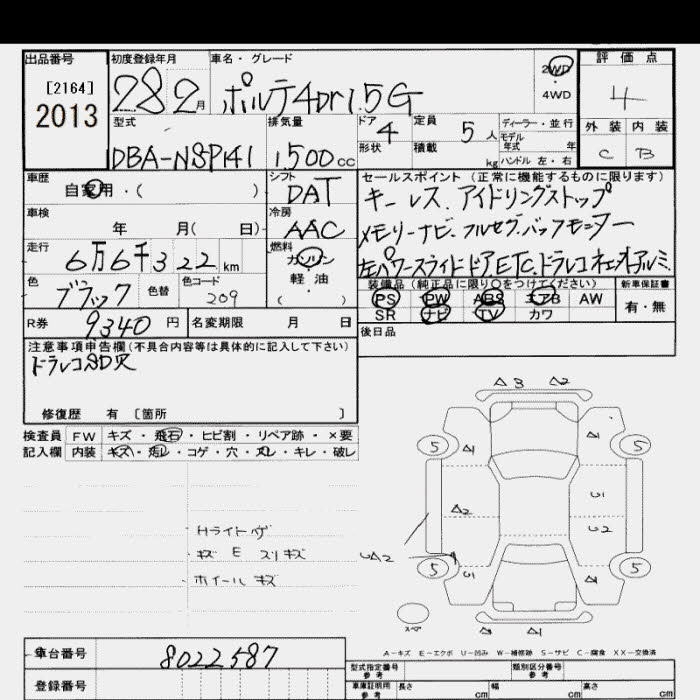 出品番号 初度登録年月 車名・グレード 2WD ・ 4WD 評価点
[2164] 2013 28 2月 ポルテ4Dr1.5G 4
型式 排気量 ドア 4 定員 5人 ディーラー・並行 外装 内装
DBA-NSP141 1,500cc 形状 積載 kg モデル年式 年 ハンドル 左・右 C B
車歴 自家用・( ) シフト DAT セールスポイント (正常に機能するものに限ります)
キーレス、アイドリングストップ
車検 年 月( 日) 冷房 AAC メモリーナビ、フルセグ、バックモニター
走行 6万6千322km 燃料 ガソリン・軽油 ( ) 左パワースライドドア、ETC、ドラレコ
色 ブラック 色替 色コード 209 装備品(純正品に限り○をつけてください) 新車保証書
PS PW ABS エアB AW 有・無
R券 9,340円 名変期限 月 日 SR ナビ TV カワ
後日品
注意事項申告欄(不具合内容等は具体的に記入して下さい)
ドラレコSD欠
修復歴 有 〔箇所 〕
検査員 FW キズ・飛石・ヒビ割・リペア跡・×要
記入欄 内装 キズ・汚レ・コゲ・穴・スレ・キレ・破レ
A3 A2
5 A1 A1 5
U1
A2
U2
・Hライトハゲ
・キズ E スリキズ UA2
・ホイールキズ 5 U1 A1 5
スペア A1
A-キズ E-エクボ U-凹み W-補修跡 S-サビ C-腐食 XX-交換済
車台番号 8022587
型式指定番号 参考 類別区分番号 参考
登録番号 車庫証明用 参考 長さ cm 幅 cm 高さ cm